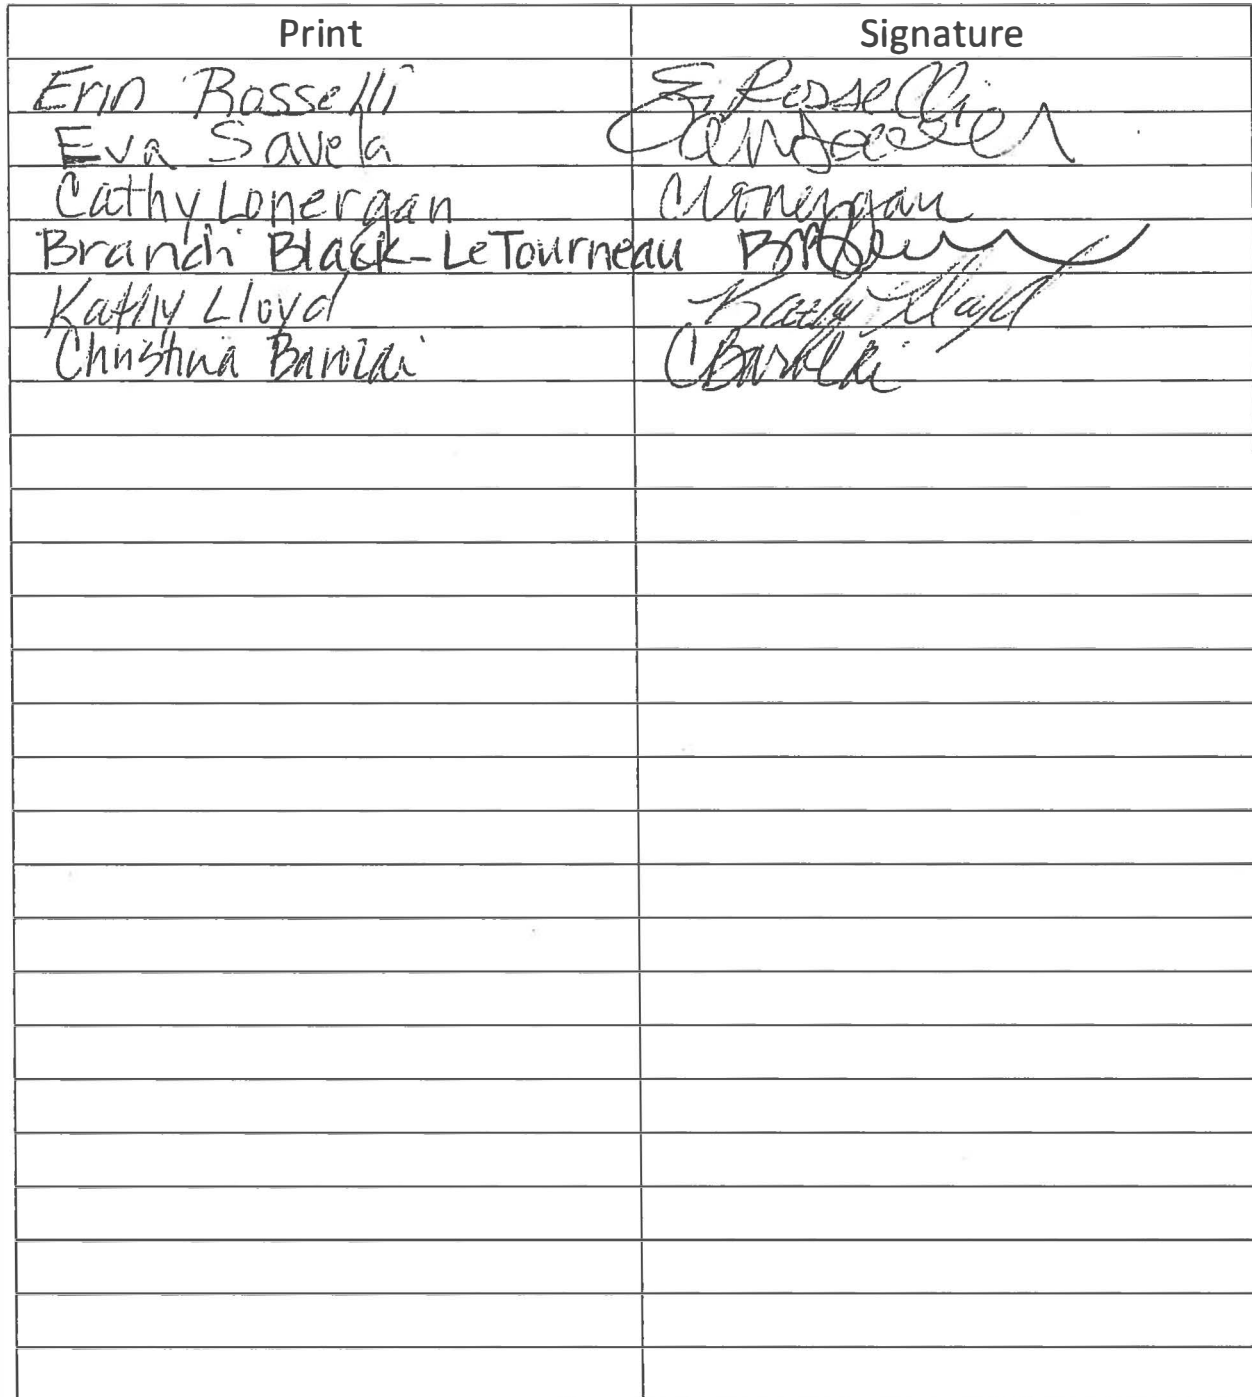 Print Signature
Erin Rosselli E. Rosselli
Eva Savela
Cathy Lonergan CLonergan
Brandi Black-LeTourneau
Kathy Lloyd Kathy Lloyd
Christina Barozai CBarozai